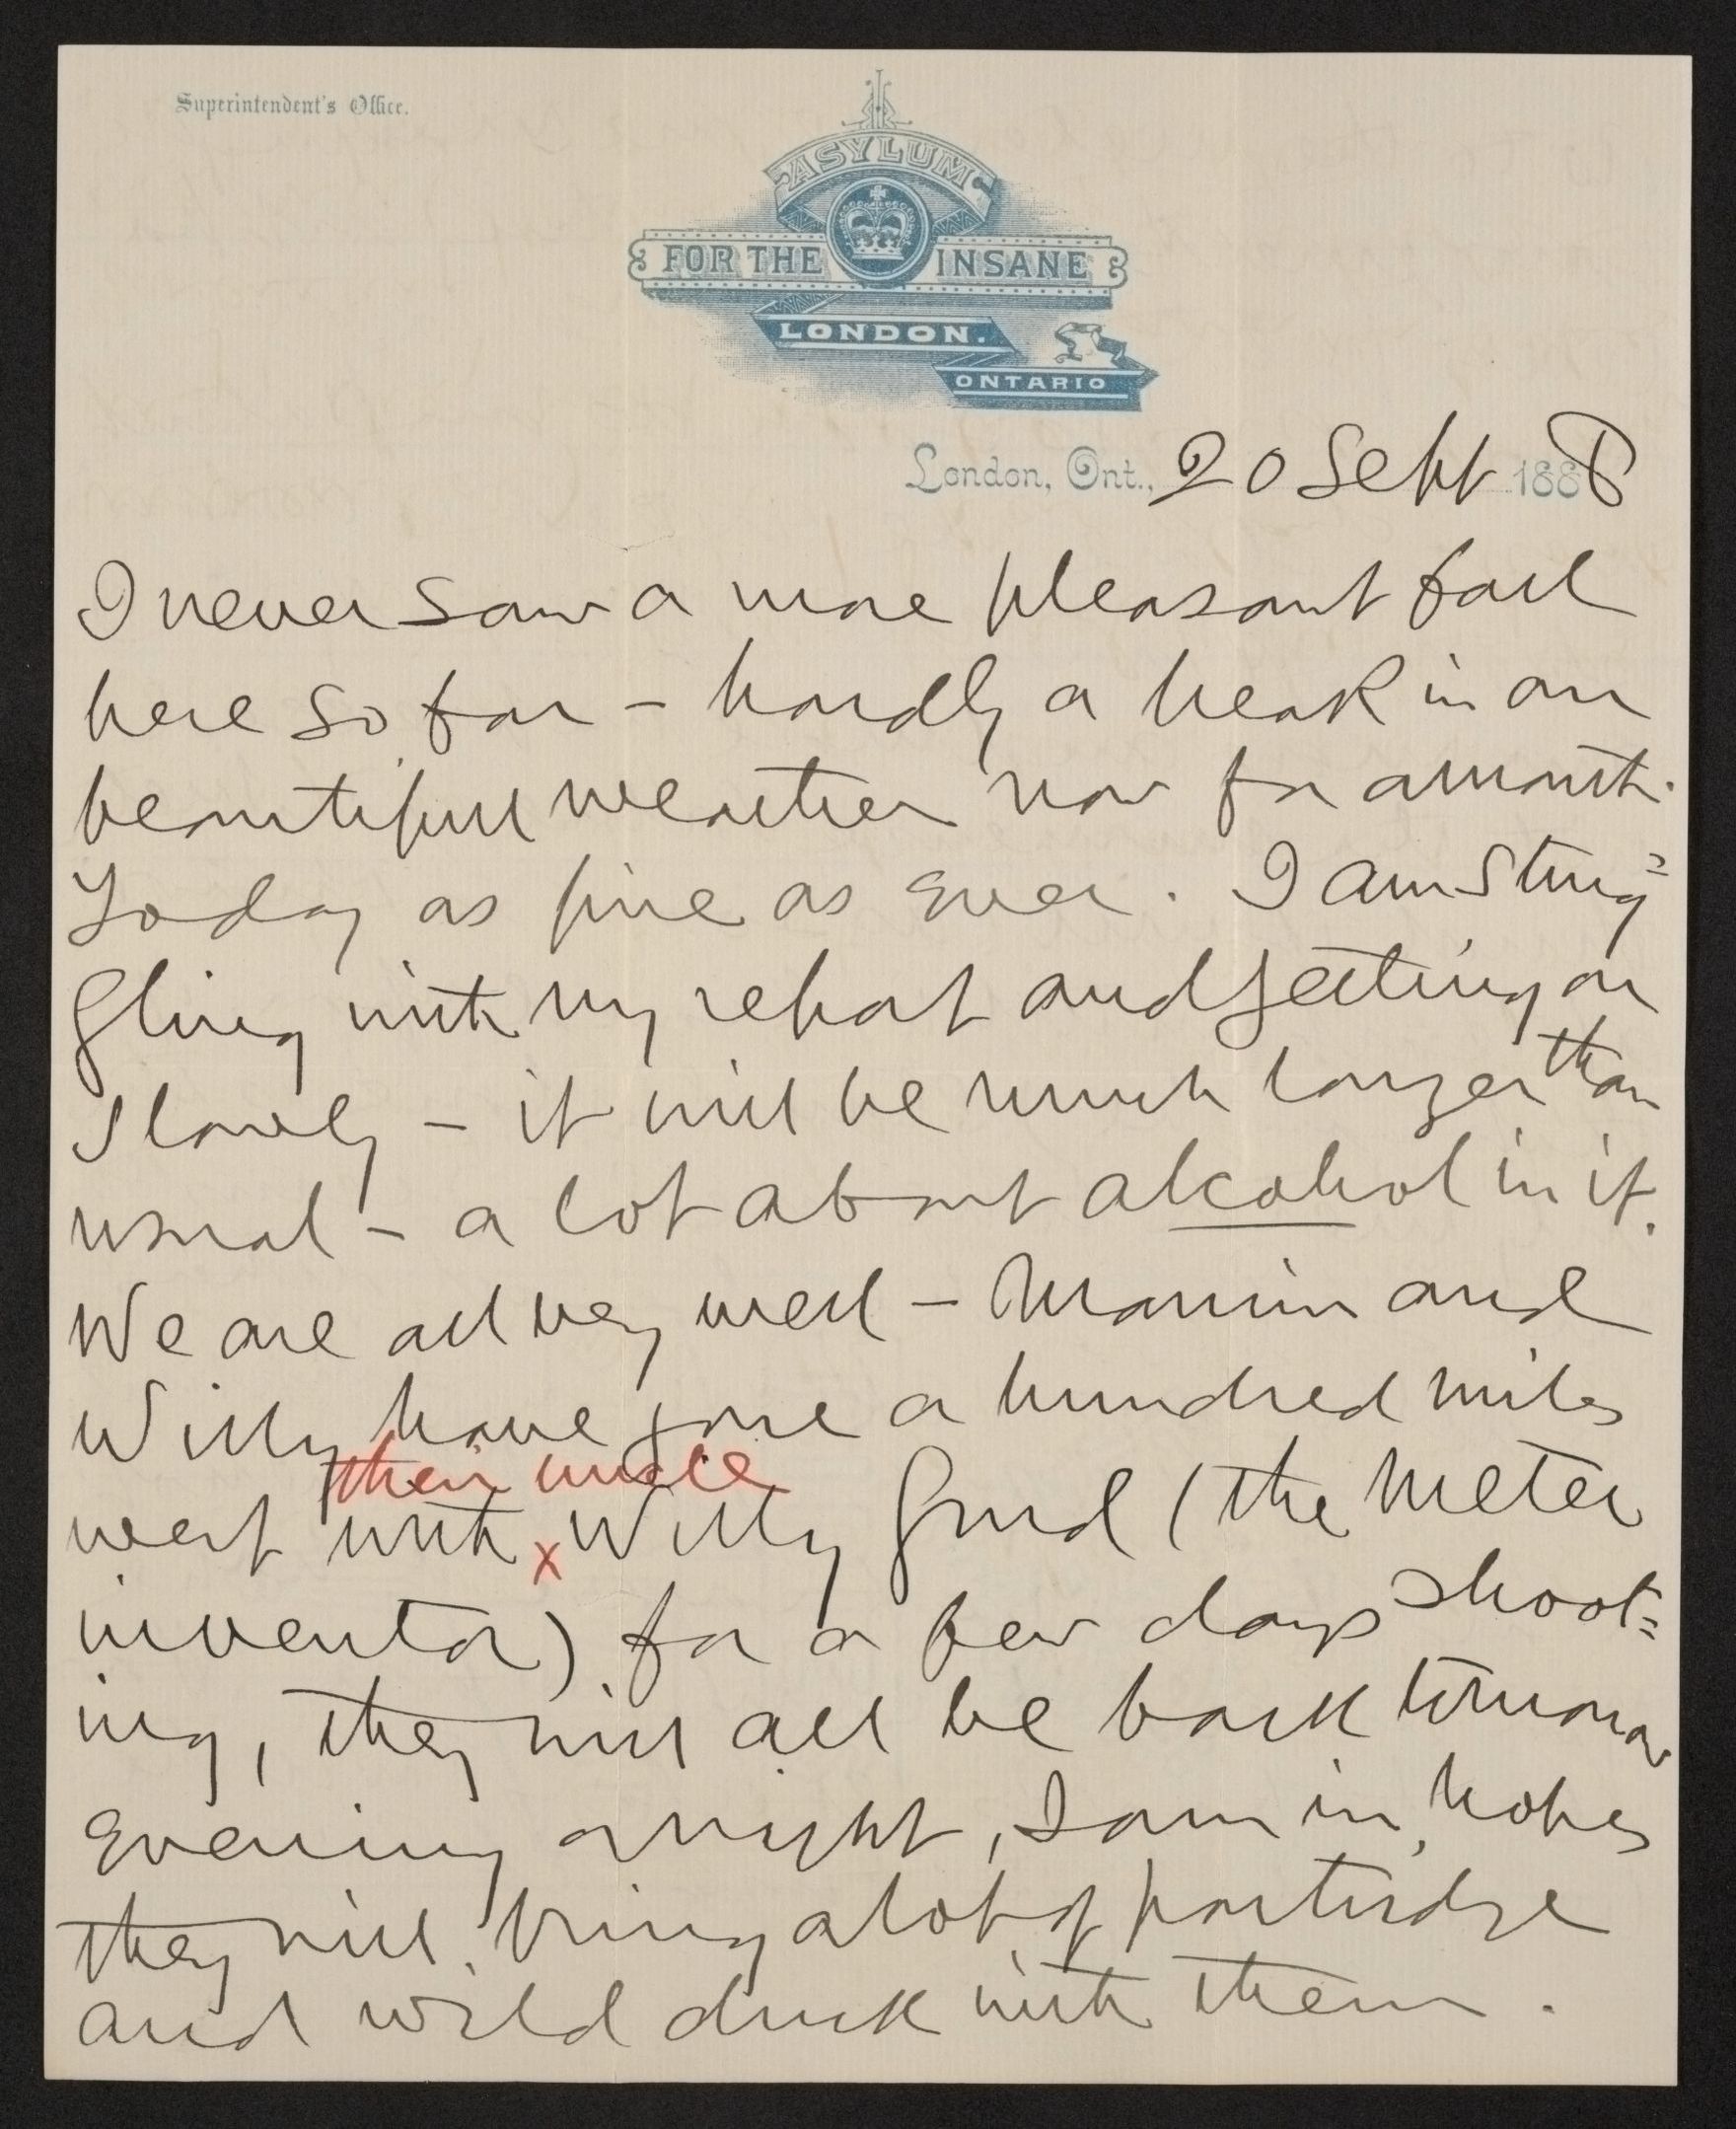 Superintendent's Office.
ASYLUM
FOR THE INSANE
LONDON.
ONTARIO
London, Ont., 20 Sept 1888
I never saw a more pleasant fall
here so far – hardly a break in our
beautiful weather now for a month.
Today as fine as ever. I am strug=
gling with my report and getting on
slowly – it will be much longer than
usual – a lot about alcohol in it.
We are all very well – Maurin and
Willy have gone a hundred miles
their uncle
west with x Willy Gurd (the meter
inventor) for a few days shoot=
ing, they will all be back tomorrow
evening or night, I am in hopes
they will bring a lot of partridge
and wild duck with them.